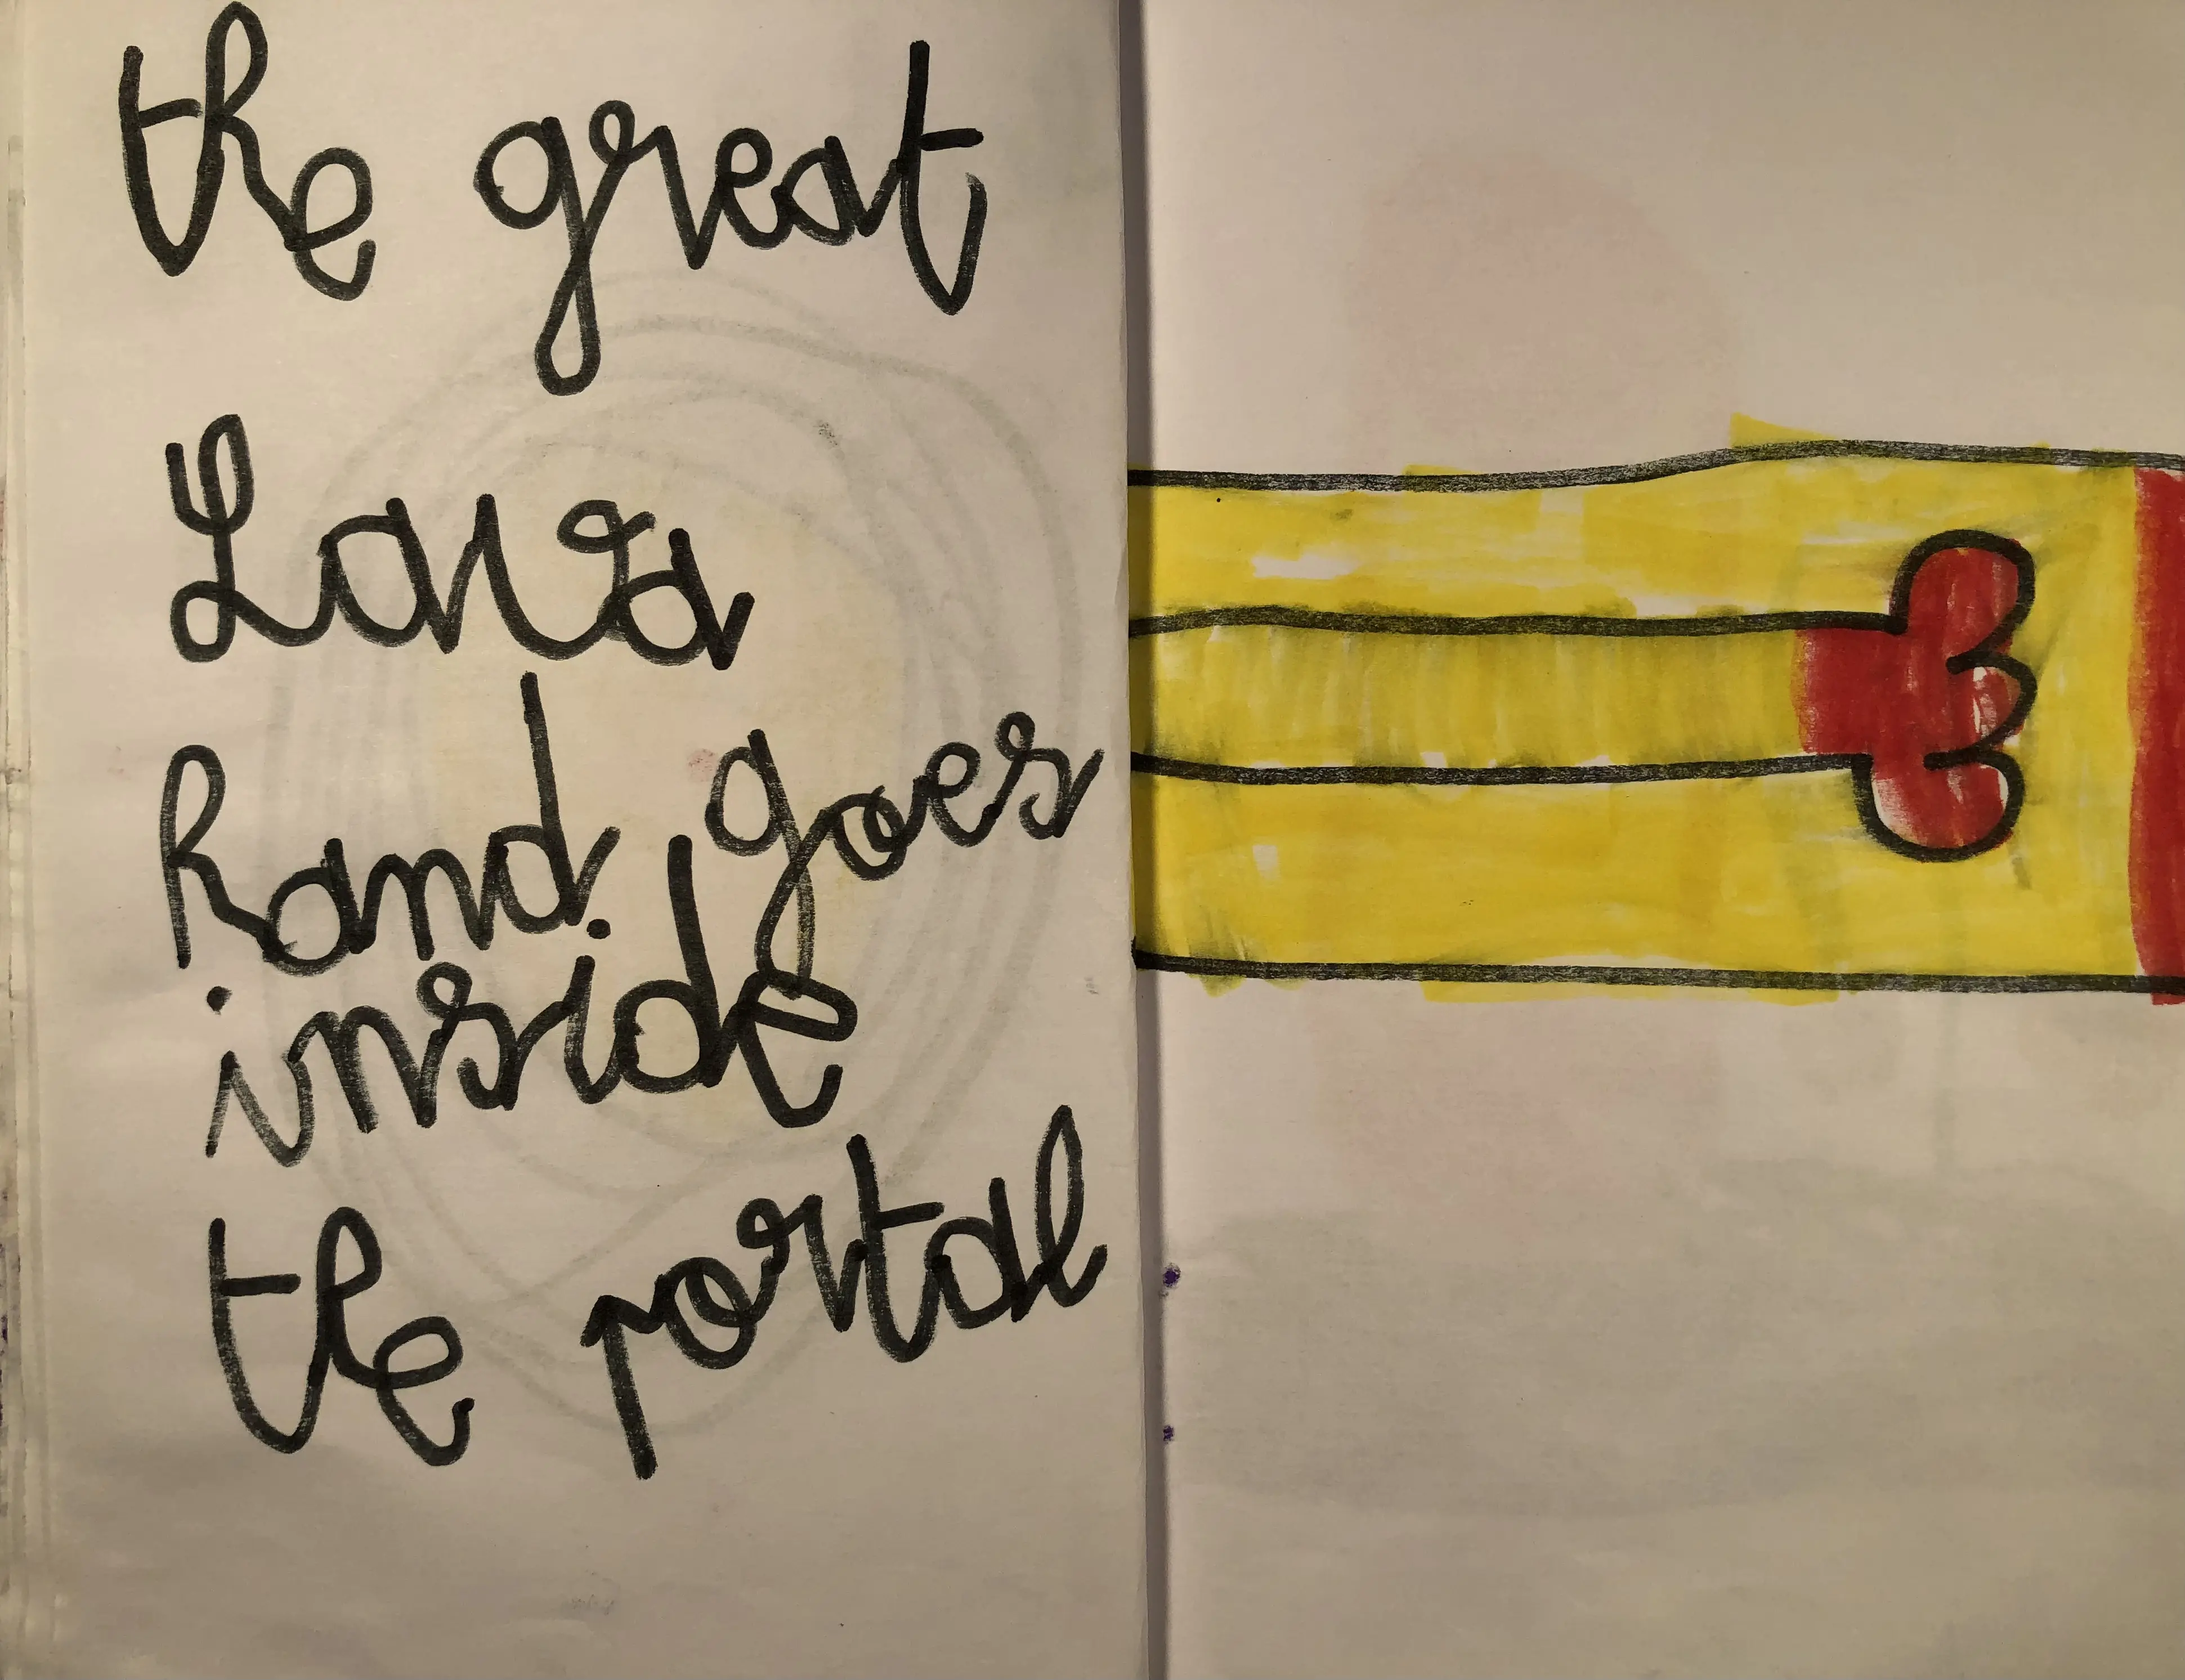 the great
Lava
hand goes
inside
the portal